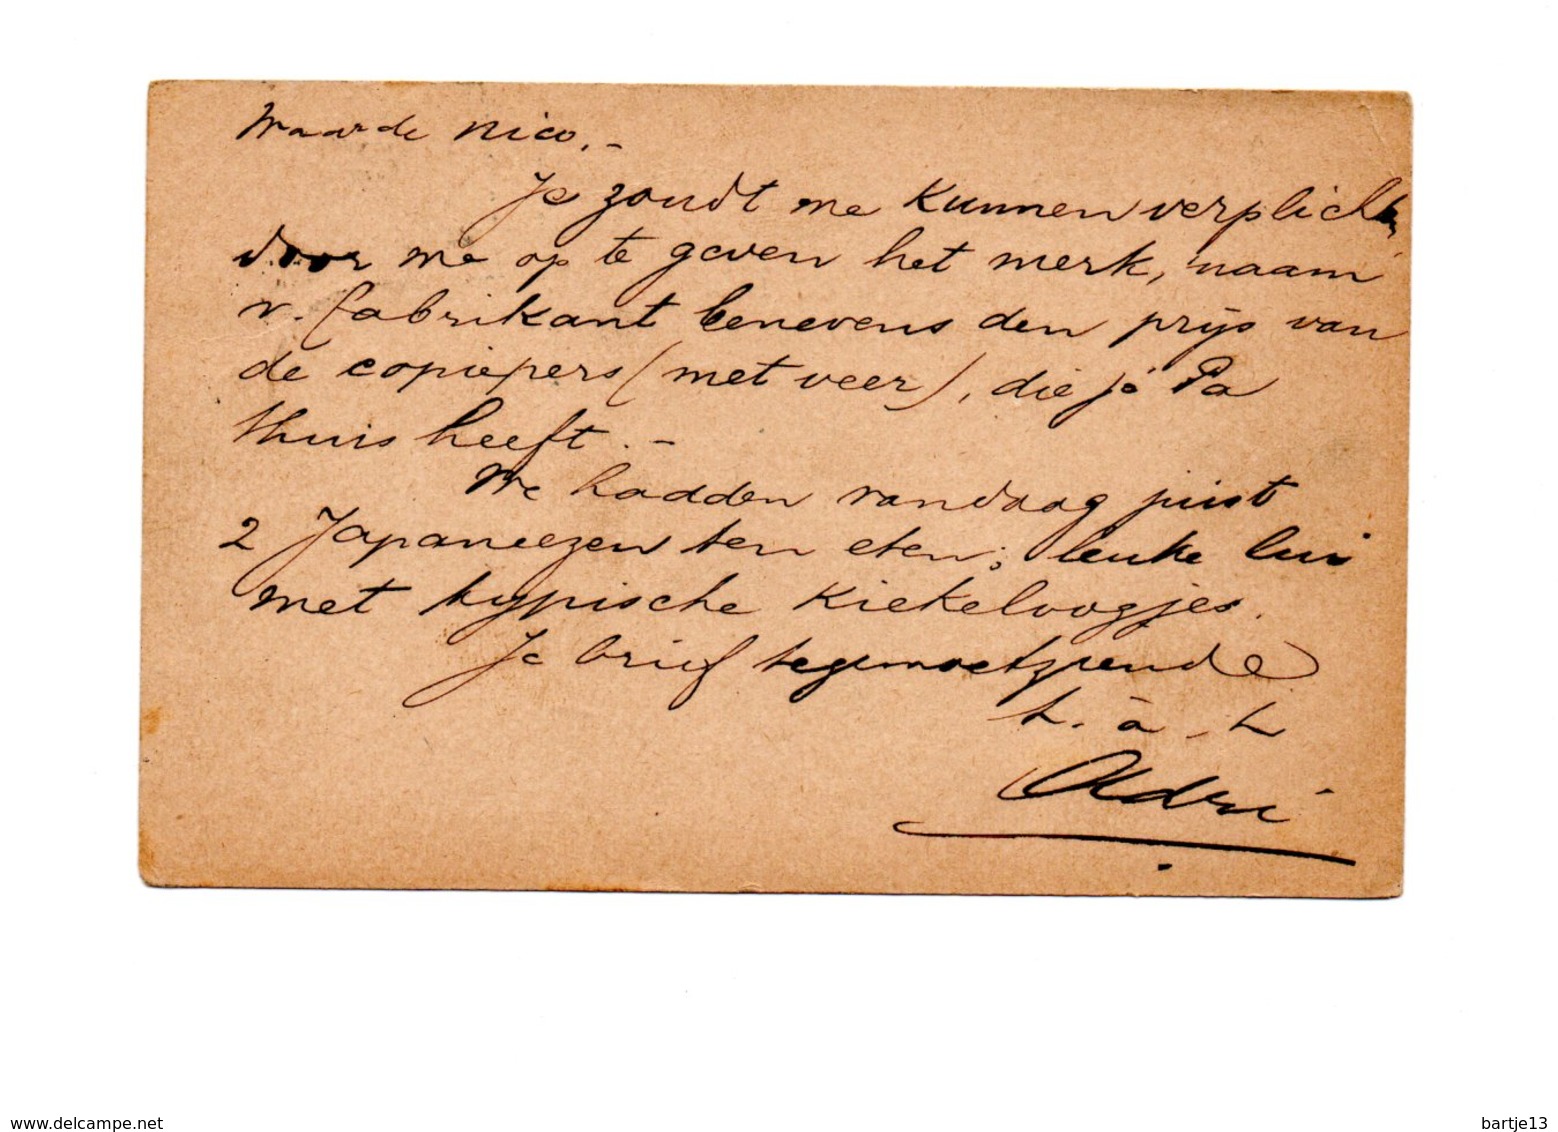 Waarde Nico.-
Je zoudt me kunnen verplichten
door me op te geven het merk, naam
v. fabrikant benevens den prijs van
de copiepers (met veer), die je Pa
thuis heeft. -
We hadden vandaag juist
2 Japaneezen ten eten; leuke lui
met typische kiekeloogjes.
Je brief tegemoetziende
t. à t.
Adri
www.delcampe.net
bartje13